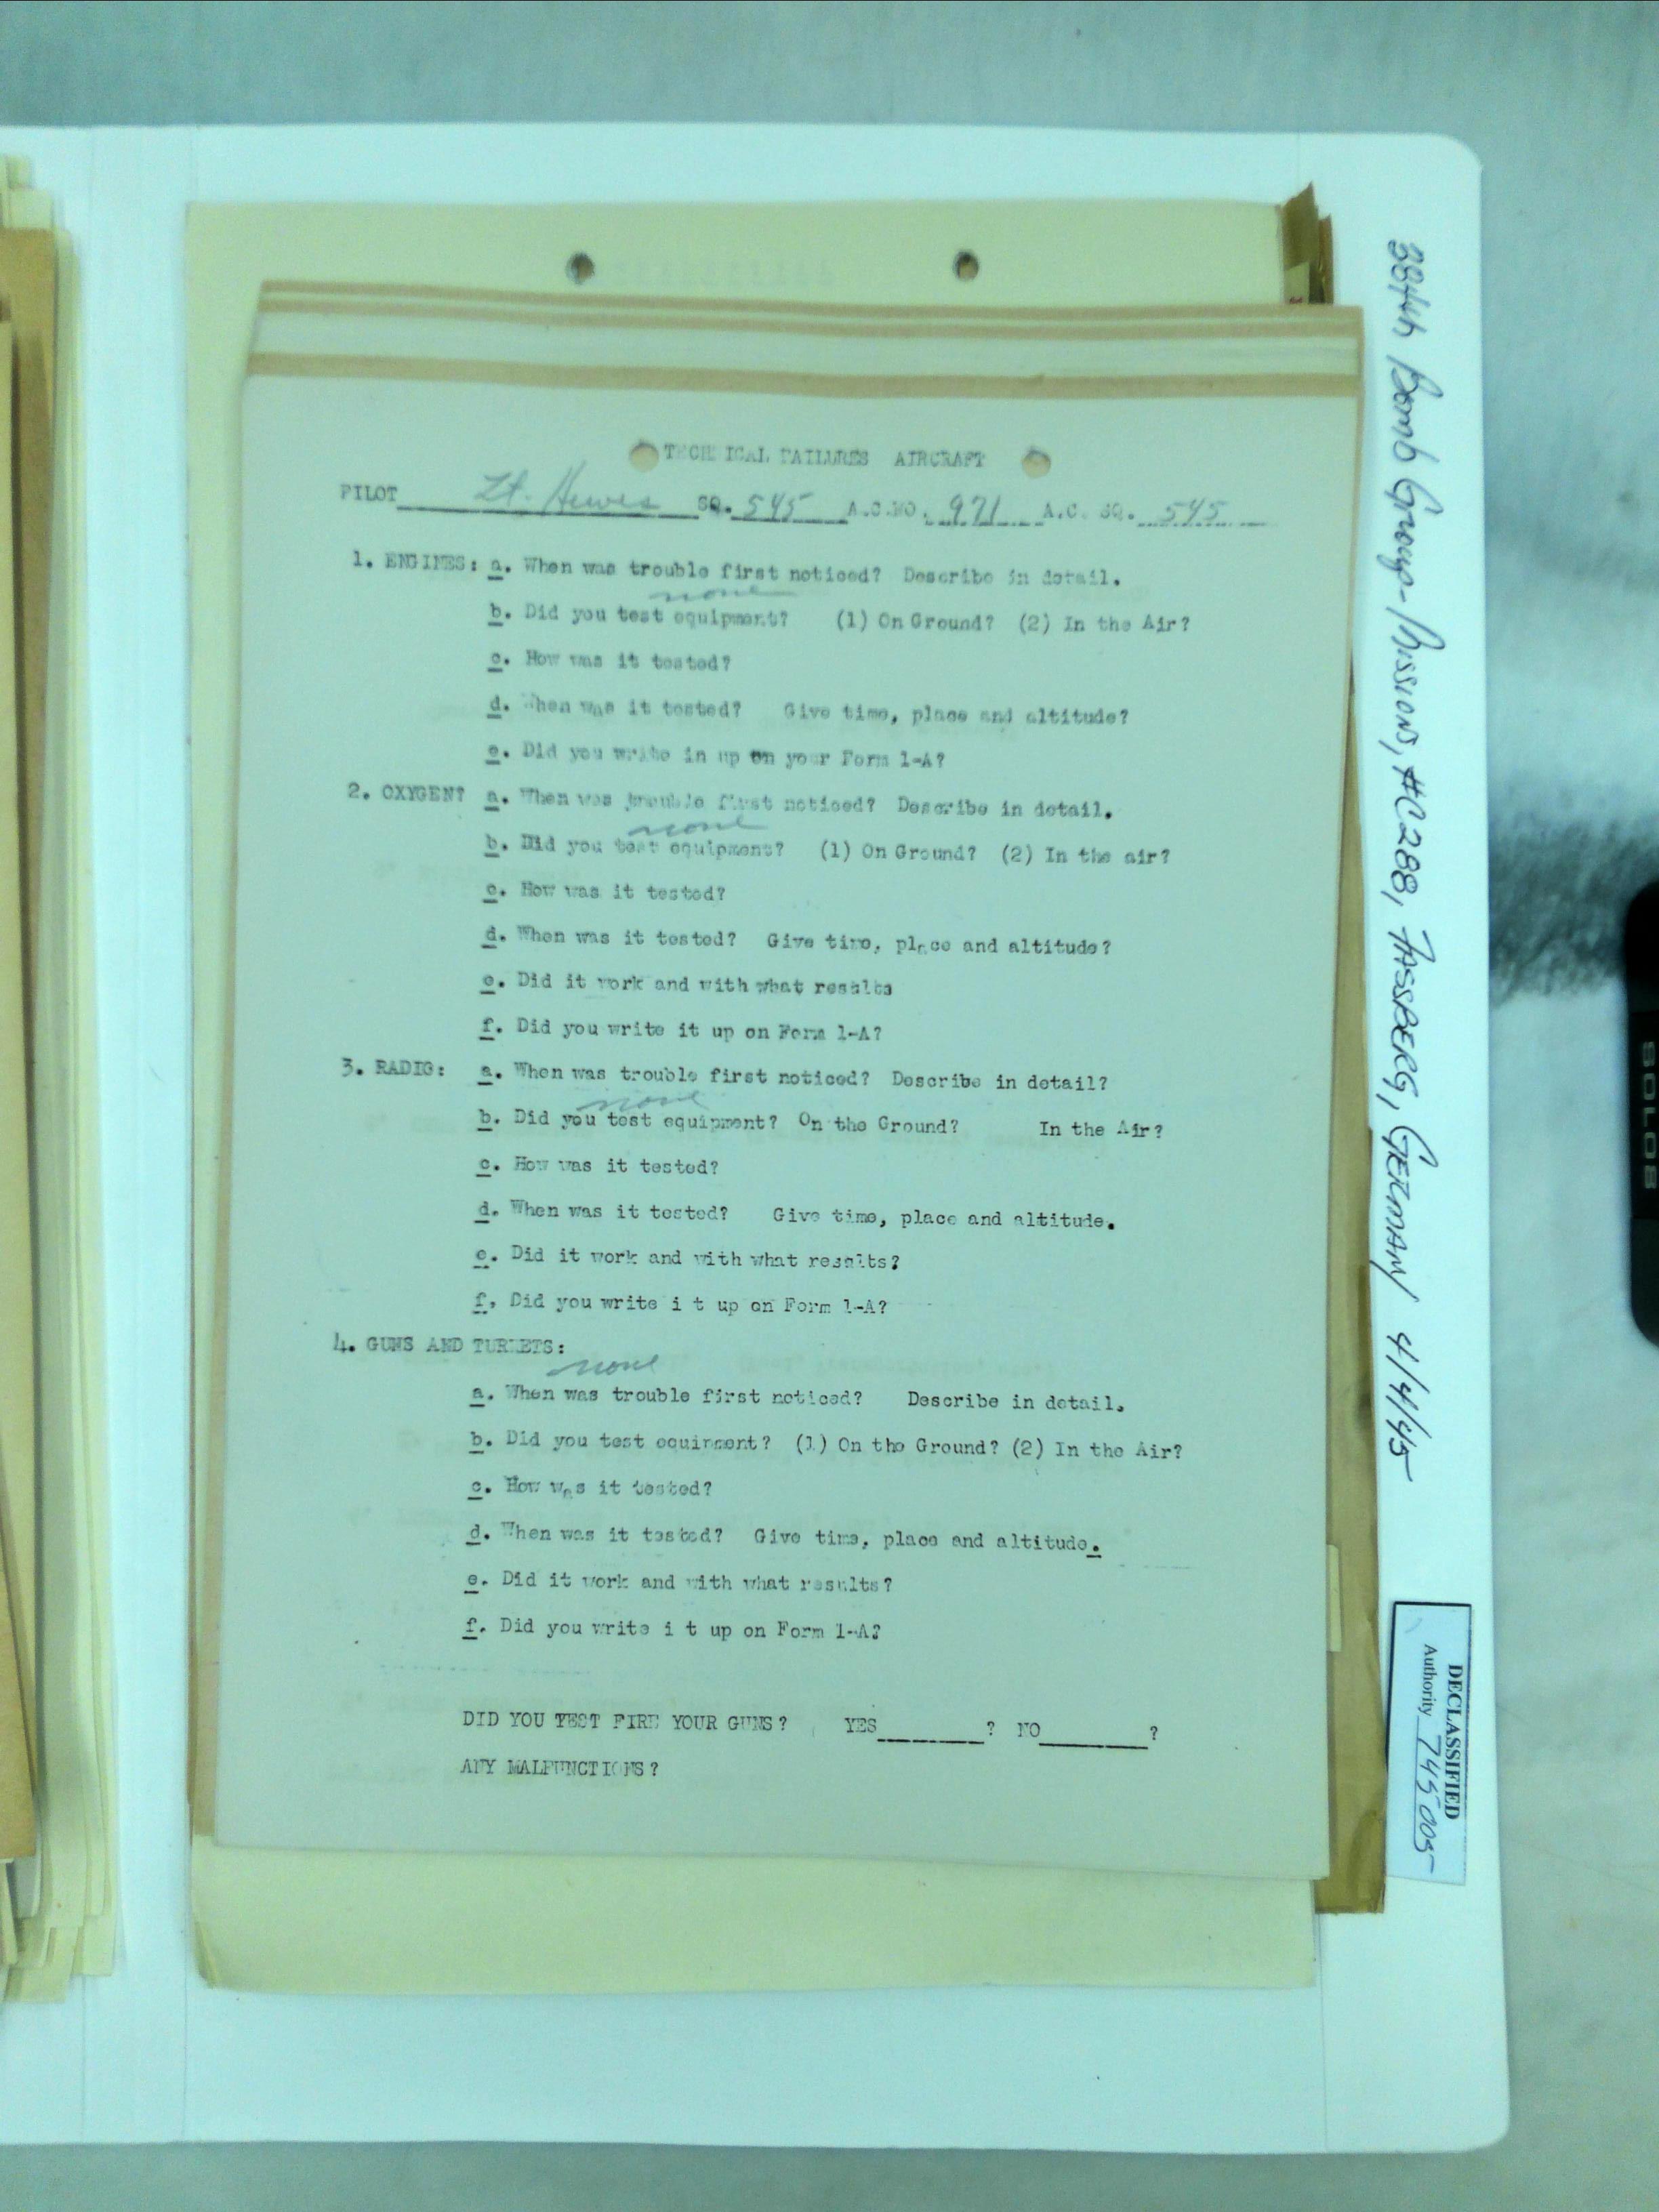 TECHNICAL FAILURES AIRCRAFT
PILOT Lt. Hewes SQ. 545 A.C.NO. 971 A.C. SQ. 545
1. ENGINES: a. When was trouble first noticed? Describe in detail.
none
b. Did you test equipment? (1) On Ground? (2) In the Air?
c. How was it tested?
d. When was it tested? Give time, place and altitude?
e. Did you write in up on your Form 1-A?
2. OXYGEN? a. When was trouble first noticed? Describe in detail.
none
b. Did you test equipment? (1) On Ground? (2) In the air?
c. How was it tested?
d. When was it tested? Give time, place and altitude?
e. Did it work and with what results
f. Did you write it up on Form 1-A?
3. RADIO: a. When was trouble first noticed? Describe in detail?
none
b. Did you test equipment? On the Ground? In the Air?
c. How was it tested?
d. When was it tested? Give time, place and altitude.
e. Did it work and with what results?
f. Did you write i t up on Form 1-A?
4. GUNS AND TURRETS:
none
a. When was trouble first noticed? Describe in detail.
b. Did you test equipment? (1) On the Ground? (2) In the Air?
c. How was it tested?
d. When was it tested? Give time, place and altitude.
e. Did it work and with what results?
f. Did you write i t up on Form 1-A?
DID YOU TEST FIRE YOUR GUNS? YES ? NO ?
ANY MALFUNCTIONS?
384th Bomb Group-Missions, #C288, FASSBERG, GERMANY 4/4/45
DECLASSIFIED
Authority 745005
SOLO8